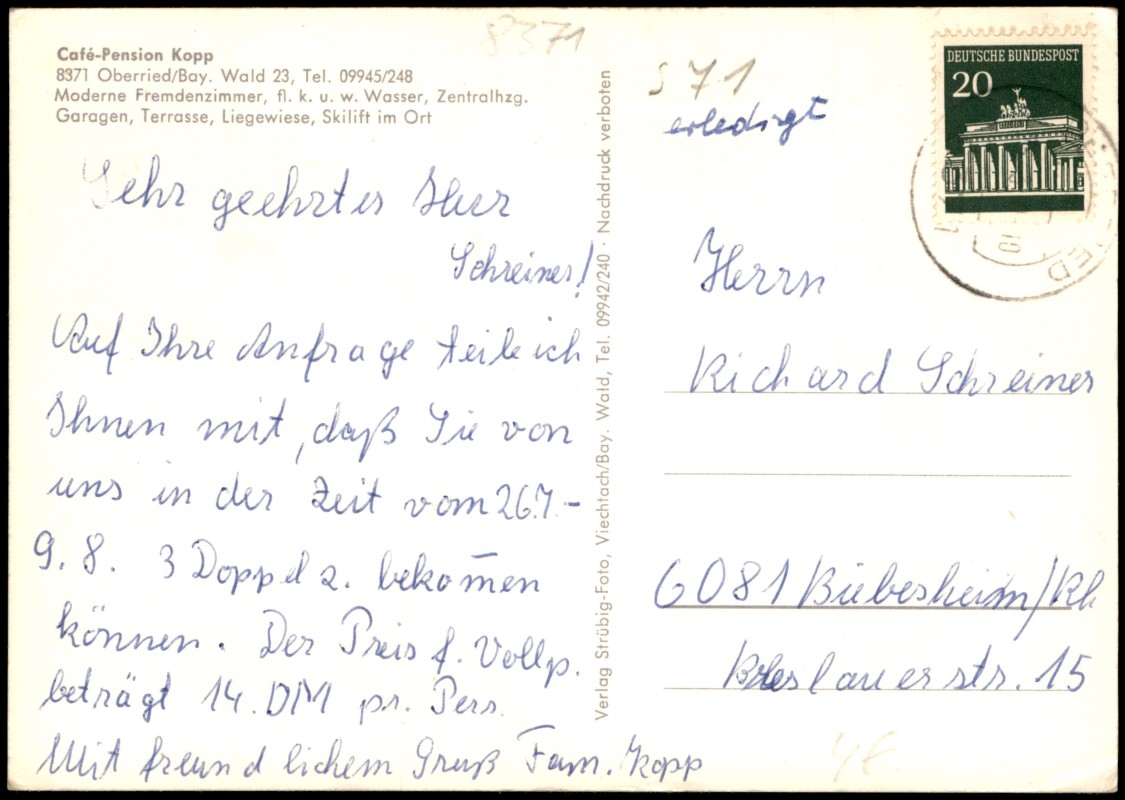 8371
Café-Pension Kopp
8371 Oberried/Bay. Wald 23, Tel. 09945/248
Moderne Fremdenzimmer, fl. k. u. w. Wasser, Zentralhzg.
Garagen, Terrasse, Liegewiese, Skilift im Ort
Sehr geehrter Herr
Schreiner!
Auf Ihre Anfrage teile ich
Ihnen mit, daß Sie von
uns in der Zeit vom 26.7.-
9.8. 3 Doppelz. bekom̅en
können. Der Preis f. Vollp.
beträgt 14.DM pr. Pers.
Mit freundlichem Gruß Fam. Kopp
Verlag Strübig-Foto, Viechtach/Bay. Wald, Tel. 09942/240 · Nachdruck verboten
71
erledigt
DEUTSCHE BUNDESPOST
20
Herrn
Richard Schreiner
6081 Biebesheim/Rh
Breslauerstr. 15